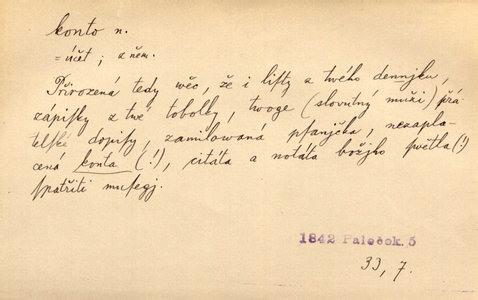 konto n.
= účet; z něm.
Přirozená tedy wěc, že i lifty z twého dennjku,
zápifky z twé tobolky, twoge (slowutný muži) přá-
telfké dopify, zamilowaná pfanjčka, nezapla-
cená konta (!), citáta a notáta božjho fwětla (!)
fpatřiti mufegj.
1842 Paleček. 5
33, 7.